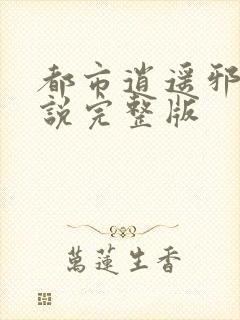 都市逍遥邪
説完整版
萬蓮生香